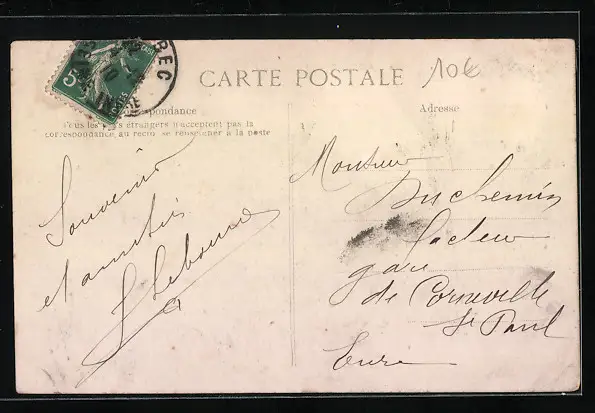 5
REC
CARTE POSTALE
10€
Correspondance
Adresse
Tous les pays étrangers n'acceptent pas la
correspondance au recto se renseigner à la poste
Souvenirs
et amitiés
Lebourne
Monsieur
Duchemin
facteur
gare
de Corneville
St Paul
Eure